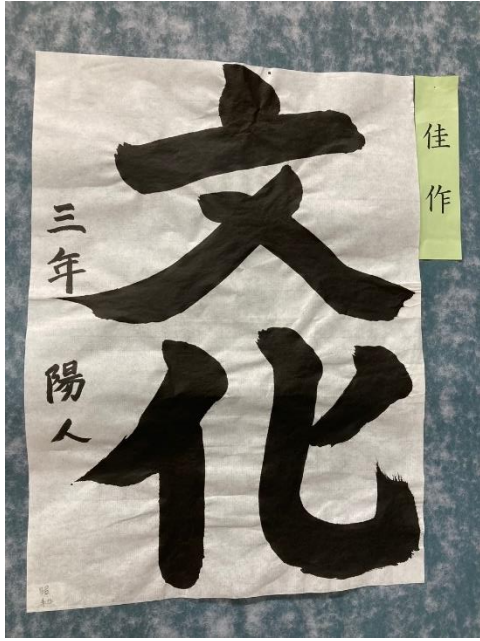 佳作
文化
三年 陽人